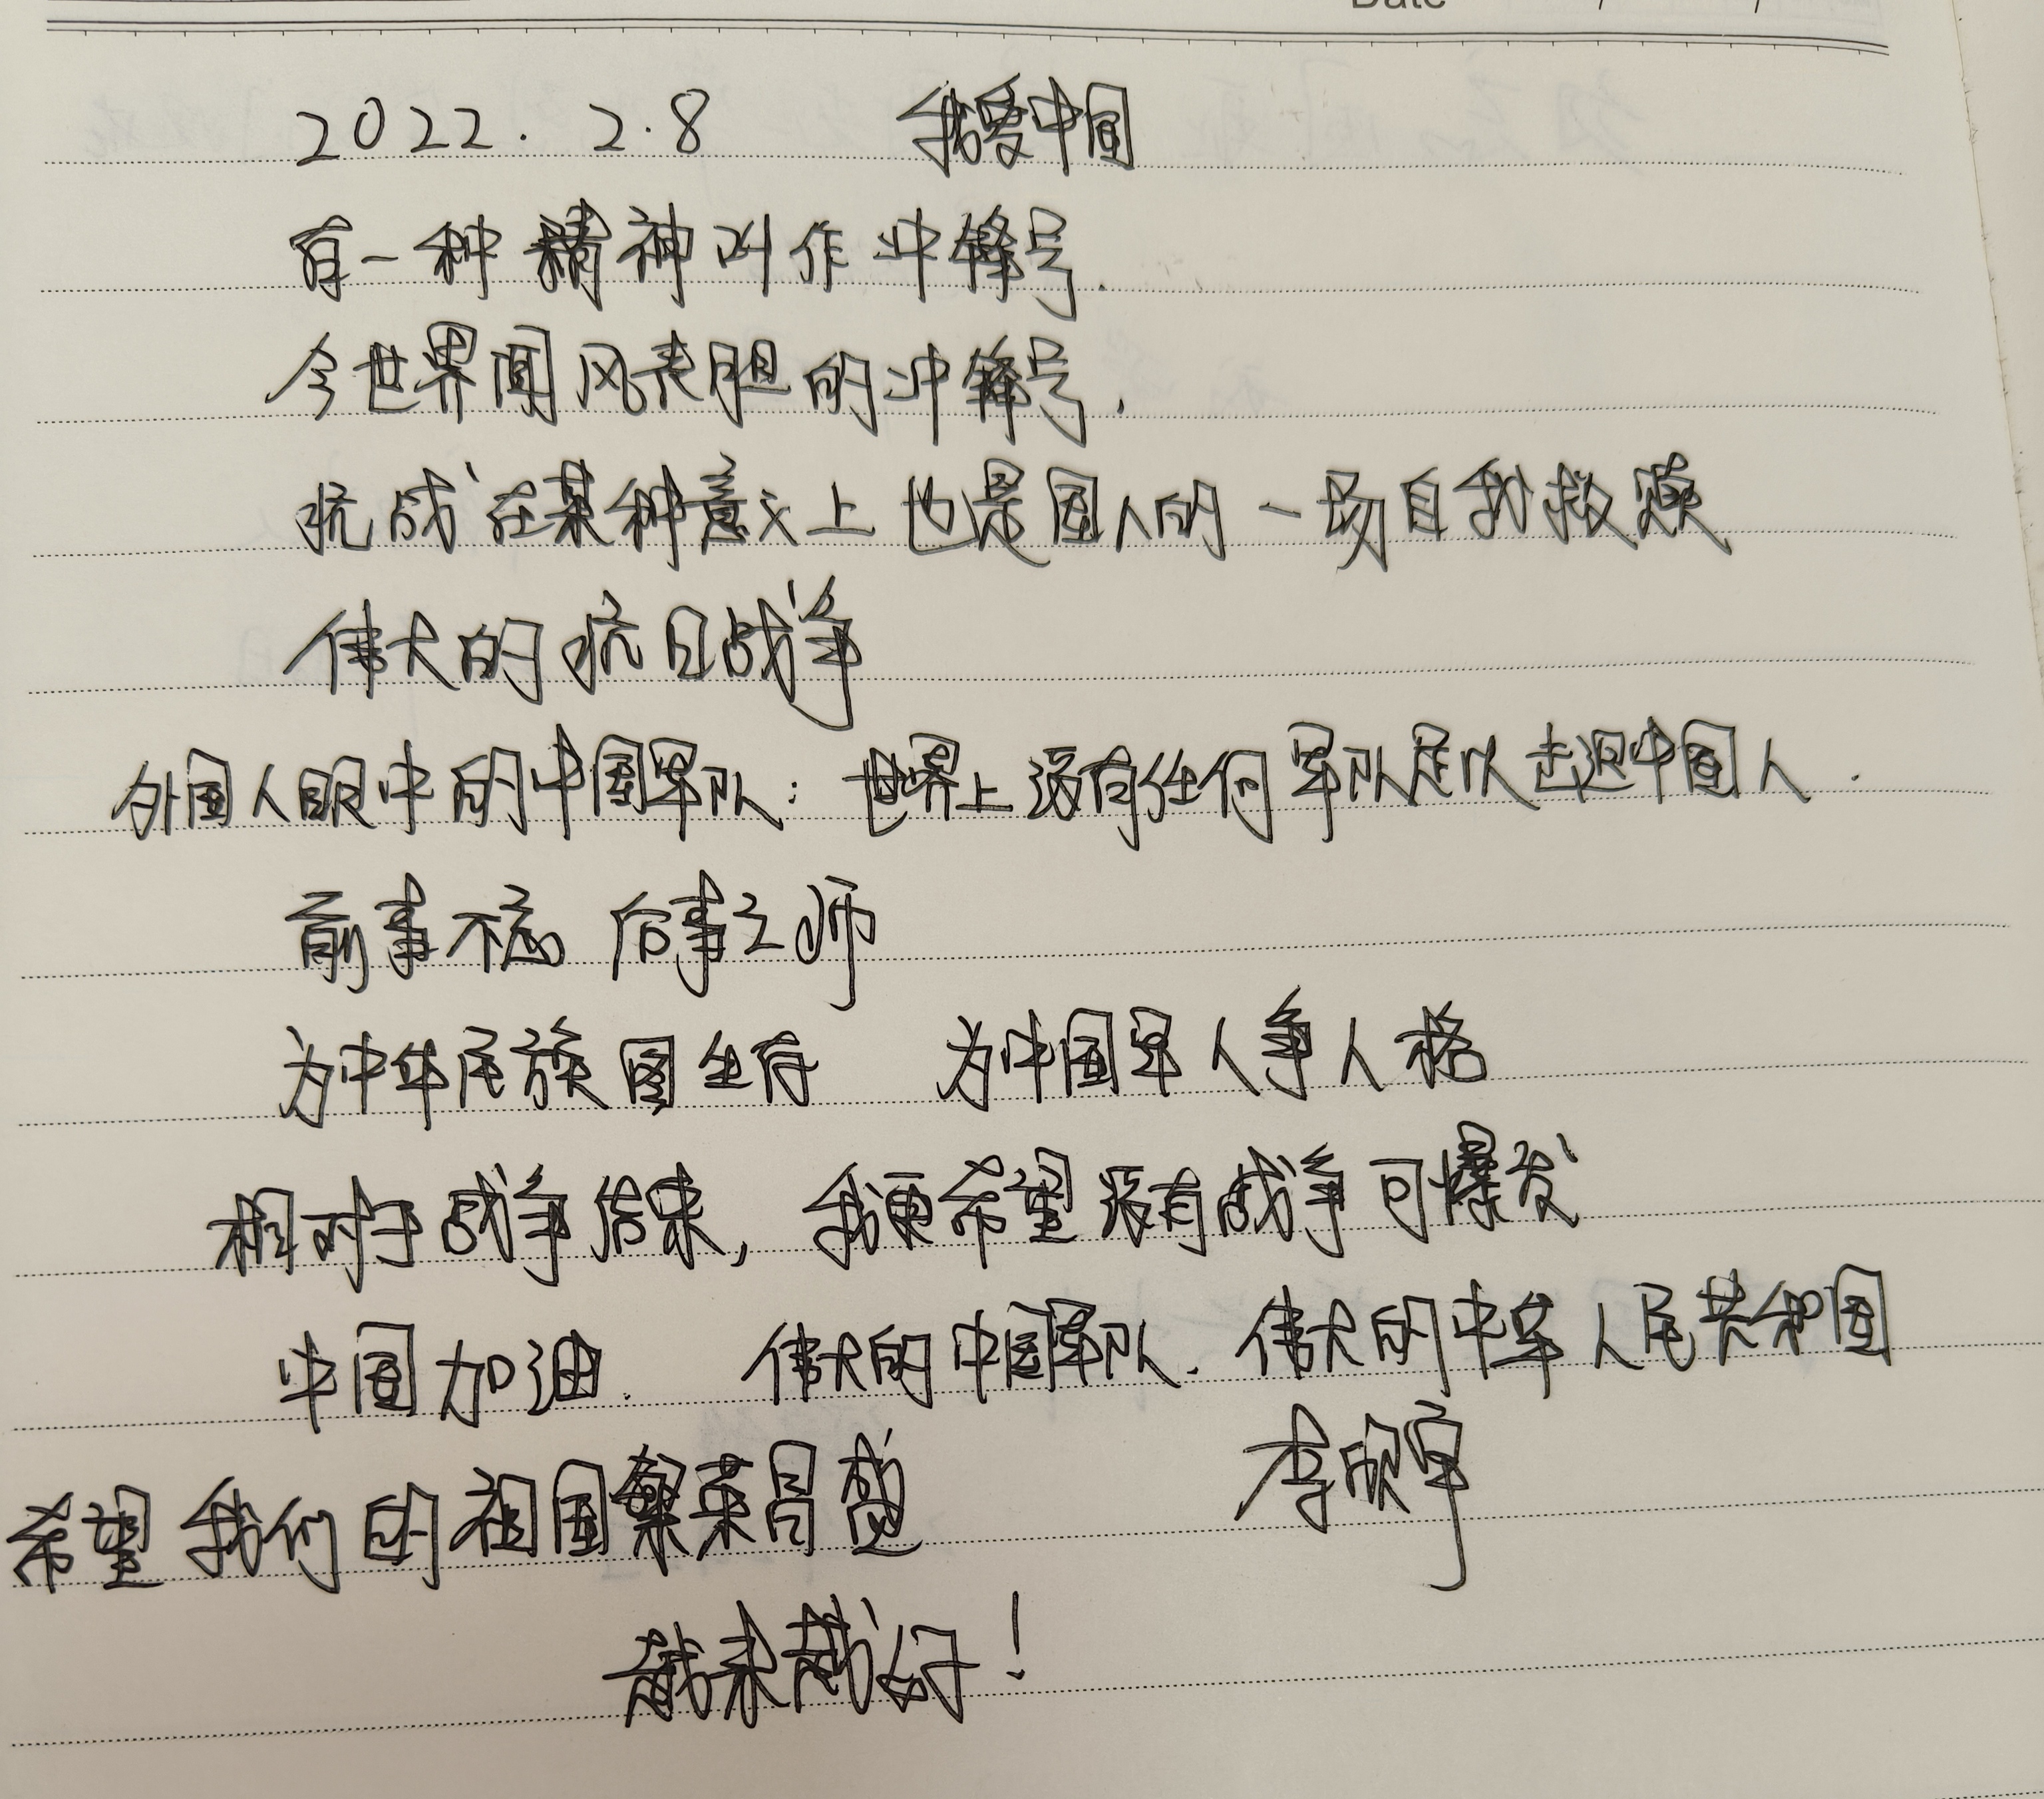 Date / /
2022.2.8 我爱中国
有一种精神叫作冲锋号.
令世界闻风丧胆的冲锋号.
抗战在某种意义上也是国人的一场自我救赎
伟大的抗日战争
外国人眼中的中国军队：世界上没有任何军队足以击退中国人.
前事不忘 后事之师
为中华民族图生存 为中国军人争人格
相对于战争结束, 我更希望没有战争可爆发
中国加油. 伟大的中国军队. 伟大的中华人民共和国
李欣宇
希望我们的祖国繁荣昌盛
越来越好!